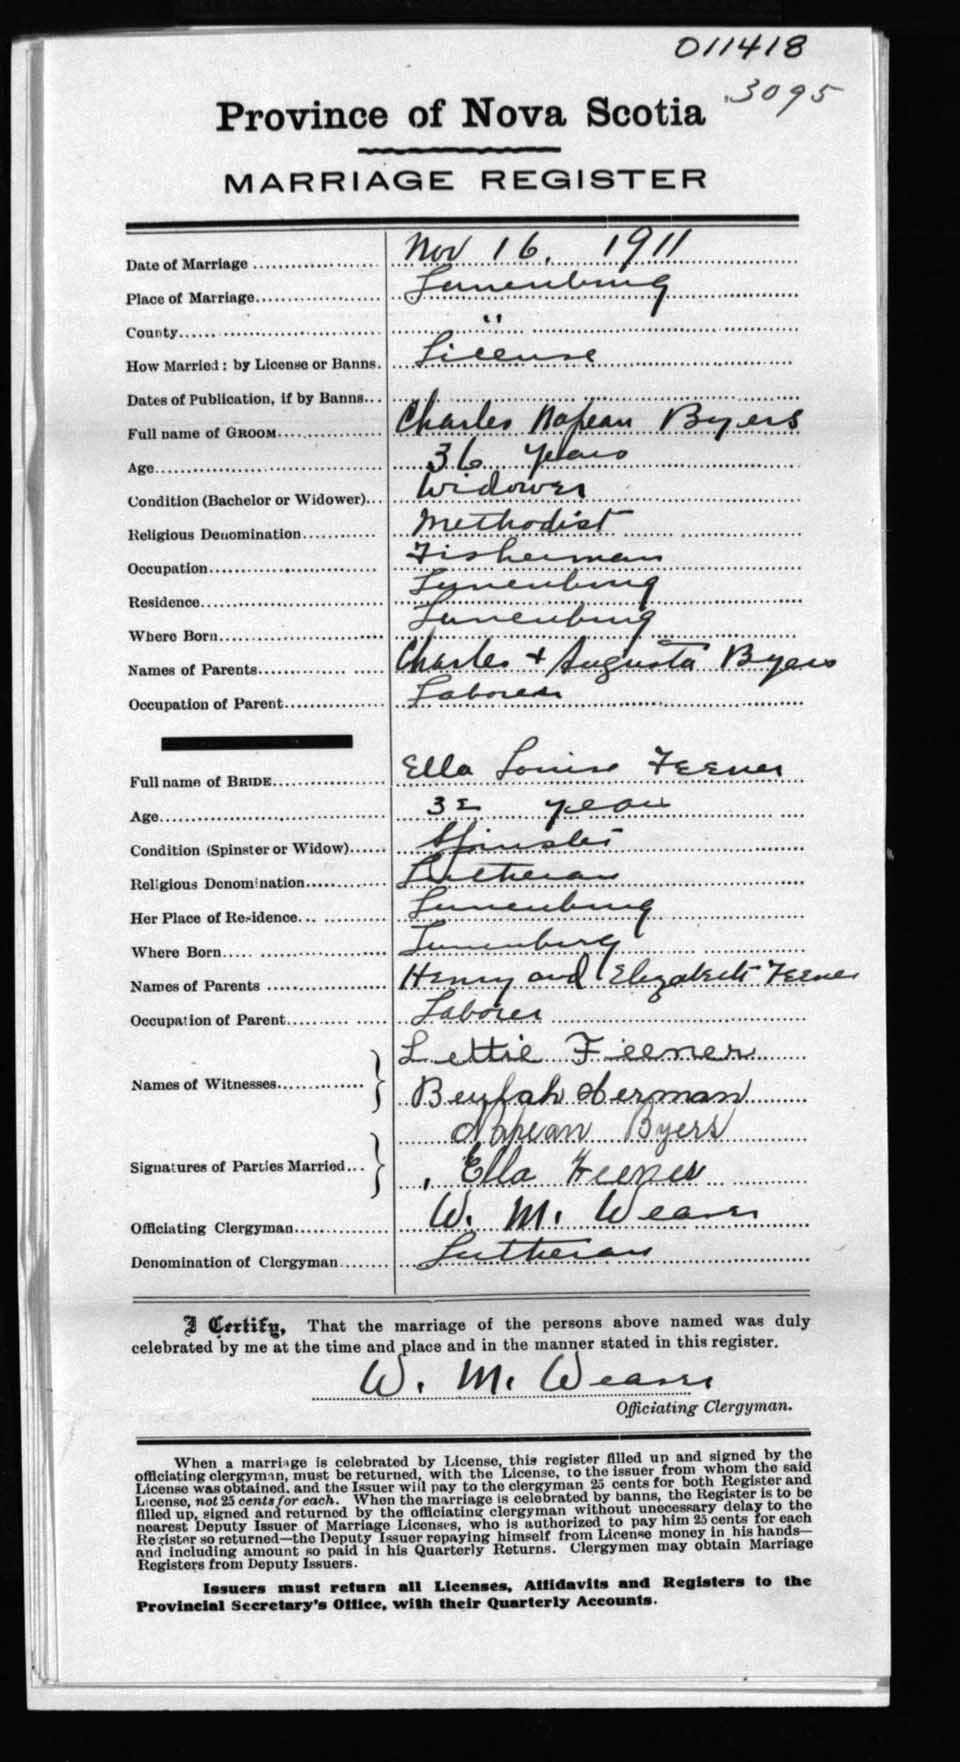 011418
3095
Province of Nova Scotia
MARRIAGE REGISTER
Date of Marriage Nov 16, 1911
Place of Marriage Lunenburg
County "
How Married: by License or Banns. License
Dates of Publication, if by Banns...
Full name of GROOM Charles Napean Byers
Age 36 years
Condition (Bachelor or Widower) Widower
Religious Denomination Methodist
Occupation Fisherman
Residence Lunenburg
Where Born Lunenburg
Names of Parents Charles + Augusta Byers
Occupation of Parent Laborer
Full name of BRIDE Ella Louise Feener
Age years
Condition (Spinster or Widow) Spinster
Religious Denomination Lutheran
Her Place of Residence Lunenburg
Where Born Lunenburg
Names of Parents Henry and Elizabeth Feener
Occupation of Parent Laborer
Lettie Feener
Names of Witnesses
Herman
Napean Byers
Signatures of Parties Married
Ella Feener
Officiating Clergyman W. M. Weaver
Denomination of Clergyman Lutheran
I Certify, That the marriage of the persons above named was duly
celebrated by me at the time and place and in the manner stated in this register.
W. M. Weaver
Officiating Clergyman.
When a marriage is celebrated by License, this register filled up and signed by the
officiating clergyman, must be returned, with the License, to the issuer from whom the said
License was obtained, and the Issuer will pay to the clergyman 25 cents for both Register and
License, not 25 cents for each. When the marriage is celebrated by banns, the Register is to be
filled up, signed and returned by the officiating clergyman without unnecessary delay to the
nearest Deputy Issuer of Marriage Licenses, who is authorized to pay him 25 cents for each
Register so returned—the Deputy Issuer repaying himself from License money in his hands—
and including amount so paid in his Quarterly Returns. Clergymen may obtain Marriage
Registers from Deputy Issuers.
Issuers must return all Licenses, Affidavits and Registers to the
Provincial Secretary's Office, with their Quarterly Accounts.